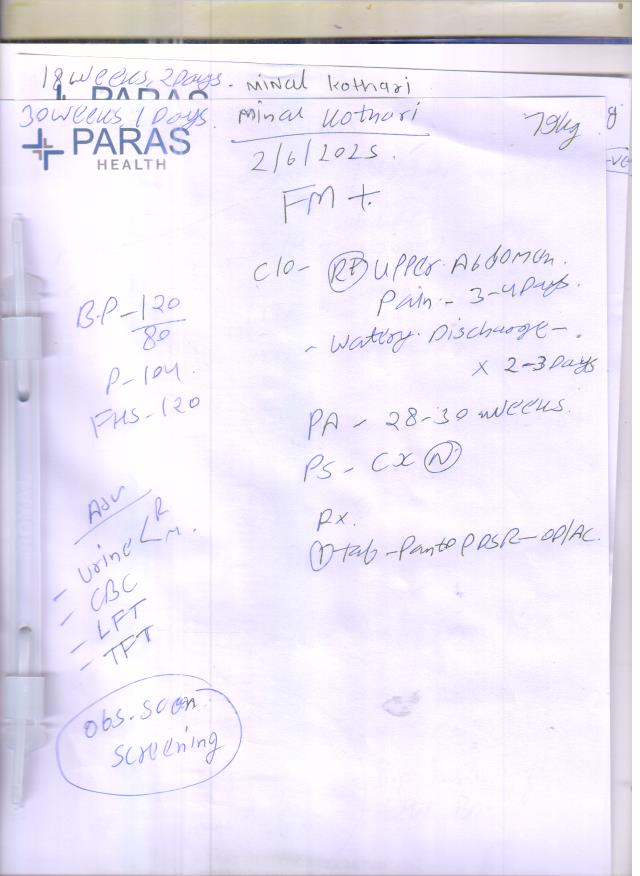 18 weeks, 2 Days. Minal Kothari
PARAS
30 weeks, 1 Days. Minal Kothari 79kg
PARAS
HEALTH
2/6/2025.
FM +
C/O- Rt Upper Abdomen.
Pain - 3-4 Days.
- Watery Discharge -
x 2-3 Days
B.P - 120
80
P - 104
FHS - 120
PA - 28-30 weeks.
PS - CX N
Adv
- Urine R
M.
- CBC
- LFT
- TFT
Rx.
1 Tab - Panto P DSR - OD/AC.
Obs. Scan
Screening
8
-ve